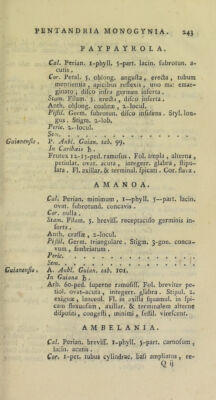 PENTANDRIA MONOGYNIA. 243
PAYPAYROLA.
Cal. Perian. 1-phyll. 5-part. lacin. subrotun. a-
cutis.
Cor. Petal. 5. oblong. angusta, erecta, tubum
mentientia, apicibus reflexis, uno mai. emar-
ginato; disco infra germen inserta.
Stam. Filam. 5. erecta, disco inserta.
Anth. oblong. coalitæ, 2-locul.
Pistil. Germ. subrotun. disco insidens. Styl. lon-
gus. Stigm. 2-lob.
Peric. 2-locul.
Sem. . . . . . . . . . . .
Guianensis. P. Aubl. Guian. tab. 99.
In Caribæis ♄.
Frutex 12-15-ped. ramosus. Fol. ampla, alterna,
petiolat. ovat. acuta, integerr. glabra, stipu-
lata. Fl. axillar. & terminal. spicati. Cor. flava.
AMANOA.
Cal. Perian. minimum, 1-phyll. 5-part. lacin.
ovat. subrotund. concavis.
Cor. nulla.
Stam. Filam. 5. breviss. receptaculo germinis in-
serta.
Anth. crassæ, 2-locul.
Pistil. Germ. triangulare. Stigm. 3-gon. conca-
vum, fimbriatum.
Peric. . . . . . . . . . .
Sem. . . . . . . . . . . .
Guianensis. A. Aubl. Guian. tab. 101.
In Guiana ♄.
Arb. 60-ped. superne ramosiss. Fol. breviter pe-
tiol. ovat-acuta, integerr. glabra. Stipul. 2.
exiguæ, lanceol. Fl. in axilla squamul. in spi-
cam flexuosam, axillar. & terminalem alterne
dispositi, congesti, minimi, sessil. virescent.
AMBELANIA.
Cal. Perian. breviss. 1-phyll. 5-part. carnosum,
lacin. acutis.
Cor. 1-pet. tubus cylindrac. basi ampliatus, re-
Q ij